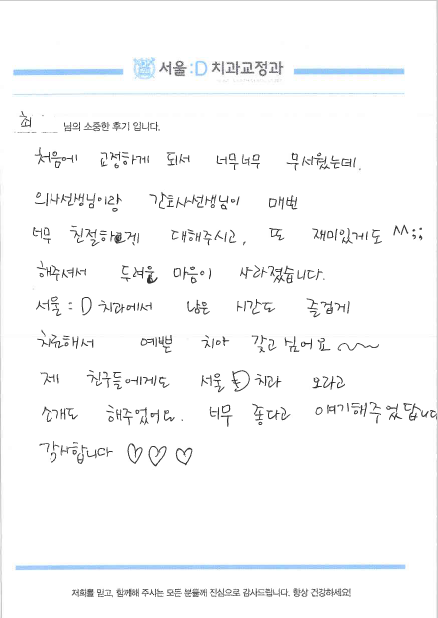 서울:D 치과교정과
최 님의 소중한 후기 입니다.
처음에 교정하게 되서 너무너무 무서웠는데,
의사선생님이랑 간호사선생님이 매번
너무 친절하게 대해주시고, 또 재미있게도 ^^;;
해주셔서 두려움 마음이 사라졌습니다.
서울:D 치과에서 남은 시간도 즐겁게
치료해서 예쁜 치아 갖고 싶어요~~
제 친구들에게도 서울:D치과 오라고
소개도 해주었어요. 너무 좋다고 얘기해주었답니다
감사합니다 ♡♡♡
저희를 믿고, 함께해 주시는 모든 분들께 진심으로 감사드립니다. 항상 건강하세요!